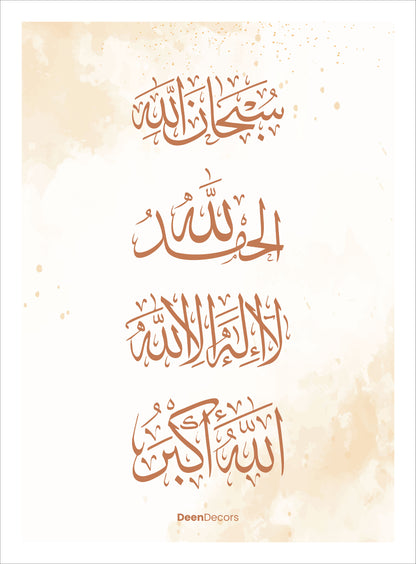 سُبْحَانَ اللّٰهِ
الحمد لله
لَا إِلٰهَ إِلَّا اللّٰهُ
اللّٰهُ أَكْبَرُ
DeenDecors